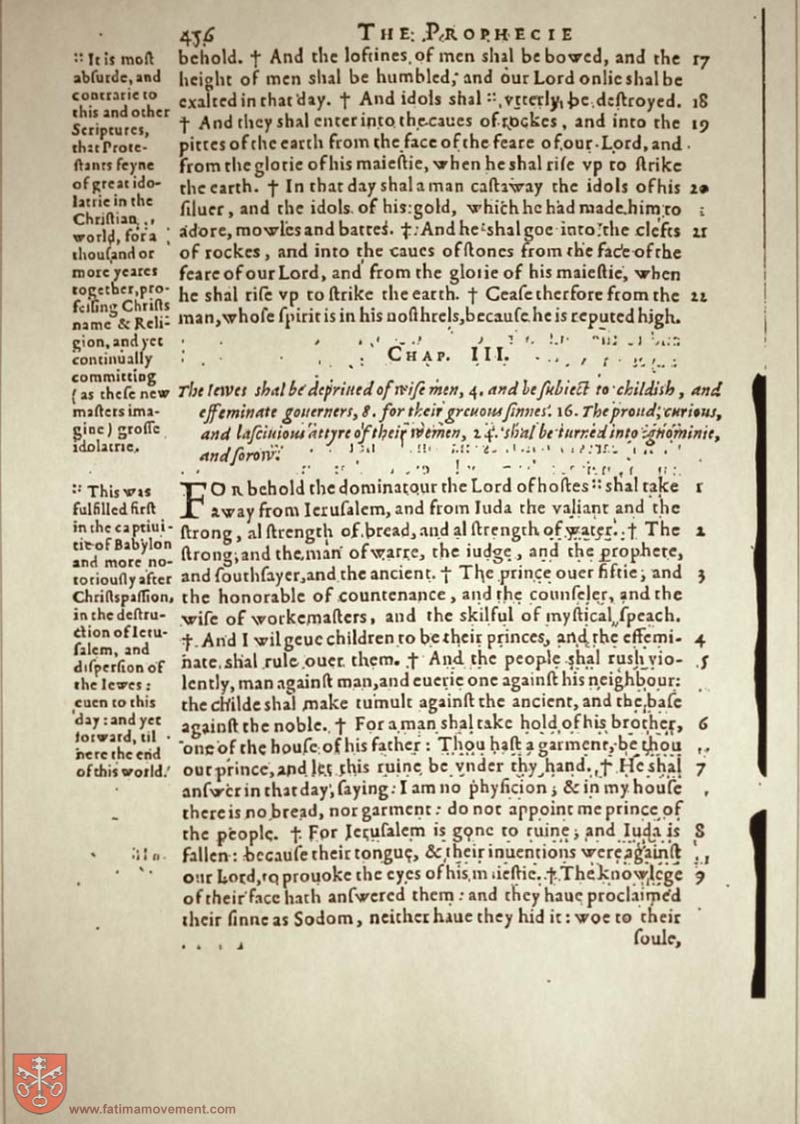 456 THE PROPHECIE
behold. † And the loftines of men shal be bowed, and the 17
height of men shal be humbled, and our Lord onlie shal be
exalted in that day. † And idols shal :: vtterly be deſtroyed. 18
† And they shal enter into the caues of rockes, and into the 19
pittes of the earth from the face of the feare of our Lord, and
from the glorie of his maieſtie, when he shal riſe vp to ſtrike
the earth. † In that day shal a man caſt away the idols of his 20
ſiluer, and the idols of his gold, which he had made him to
adore, mowles and battes. † And he shal goe into the clefts 21
of rockes, and into the caues of ſtones from the face of the
feare of our Lord, and from the glorie of his maieſtie, when
he shal riſe vp to ſtrike the earth. † Ceaſe therfore from the 22
man, whoſe ſpirit is in his noſthrels, becauſe he is reputed high.
:: It is moſt
abſurde, and
contrarie to
this and other
Scriptures,
that Prote-
ſtants feyne
of great ido-
latrie in the
Chriſtian
world, for a
thouſand or
more yeares
together, pro-
feſſing Chriſts
name & Reli-
gion, and yet
continually
committing
(as theſe new
maſters ima-
gine) groſſe
idolatrie.
CHAP. III.
The Iewes shal be depriued of wiſe men, 4. and be ſubiect to childish, and
effeminate gouerners, 8. for their greuous ſinnes. 16. The proud, curious,
and laſciuious attyre of their wemen, 24. shal be turned into ignominie,
and ſorow.
FOR behold the dominatour the Lord of hoſtes :: shal take 1
away from Ieruſalem, and from Iuda the valiant and the
ſtrong, al ſtrength of bread, and al ſtrength of water. † The 2
ſtrong, and the man of warre, the iudge, and the prophete,
and ſouthſayer, and the ancient. † The prince ouer fiftie, and 3
the honorable of countenance, and the counſeler, and the
wiſe of workemaſters, and the skilful of myſtical ſpeach.
† And I wil geue children to be their princes, and the effemi- 4
nate shal rule ouer them. † And the people shal rush vio- 5
lently, man againſt man, and euerie one againſt his neighbour:
the childe shal make tumult againſt the ancient, and the baſe
againſt the noble. † For a man shal take hold of his brother, 6
one of the houſe of his father: Thou haſt a garment, be thou
our prince, and let this ruine be vnder thy hand. † He shal 7
anſwer in that day, ſaying: I am no phyſicion, & in my houſe
there is no bread, nor garment: do not appoint me prince of
the people. † For Ieruſalem is gone to ruine, and Iuda is 8
fallen: becauſe their tongue, & their inuentions were againſt
our Lord, to prouoke the eyes of his maieſtie. † The knowlege 9
of their face hath anſwered them: and they haue proclaimed
their ſinne as Sodom, neither haue they hid it: woe to their
ſoule,
:: This was
fulfilled firſt
in the captiui-
tie of Babylon
and more no-
toriouſly after
Chriſts paſſion,
in the deſtru-
ction of Ieru-
ſalem, and
diſperſion of
the Iewes:
euen to this
day: and yet
forward, til
nere the end
of this world.
www.fatimamovement.com